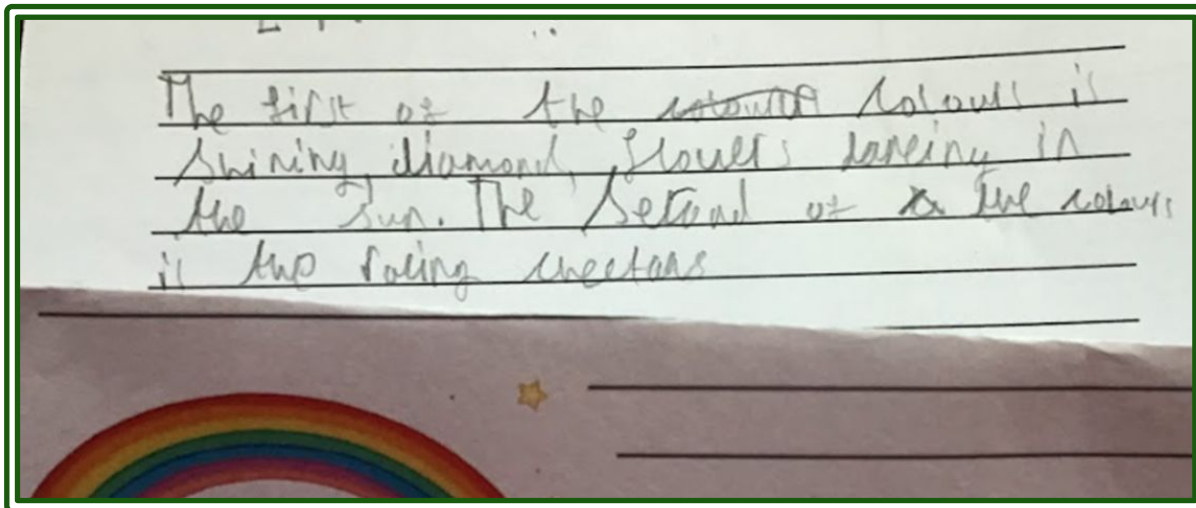 The first of the colours colours is
shining, diamond, flowers danceing in
the sun. The second of the colours
is two racing cheetahs